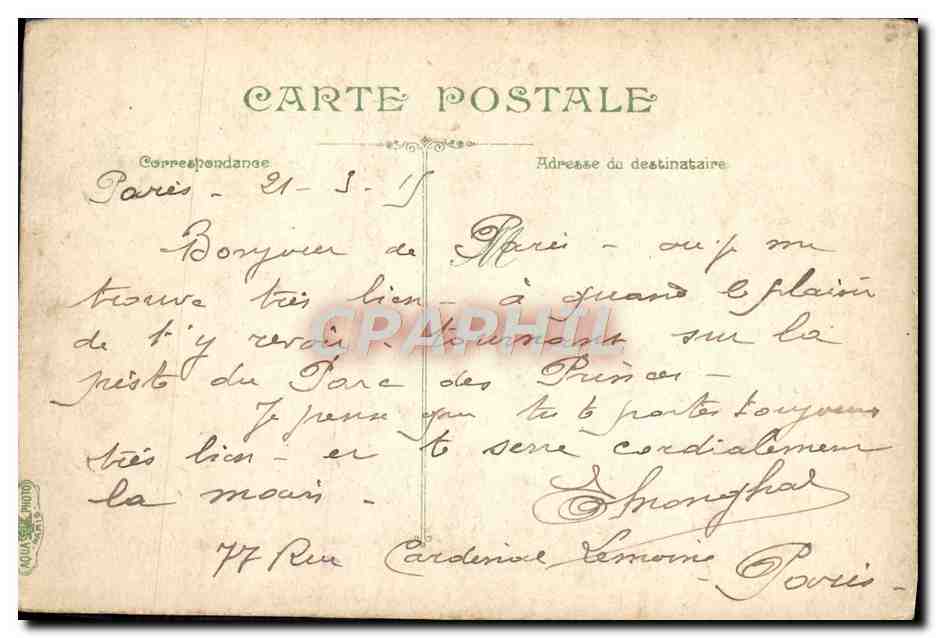 CARTE POSTALE
Correspondance
Adresse du destinataire
Paris - 21 - 3 - 15
Bonjour de Paris - où j me
trouve très bien - à quand le plaisir
de t'y revoir - tournant sur la
piste du Parc des Princes -
Je pense que tu te portes toujours
très bien - et te serre cordialement
la main -
77 Rue Cardinal Lemoine
Paris -
CPAPHIL
AQUA PHOTO
PARIS